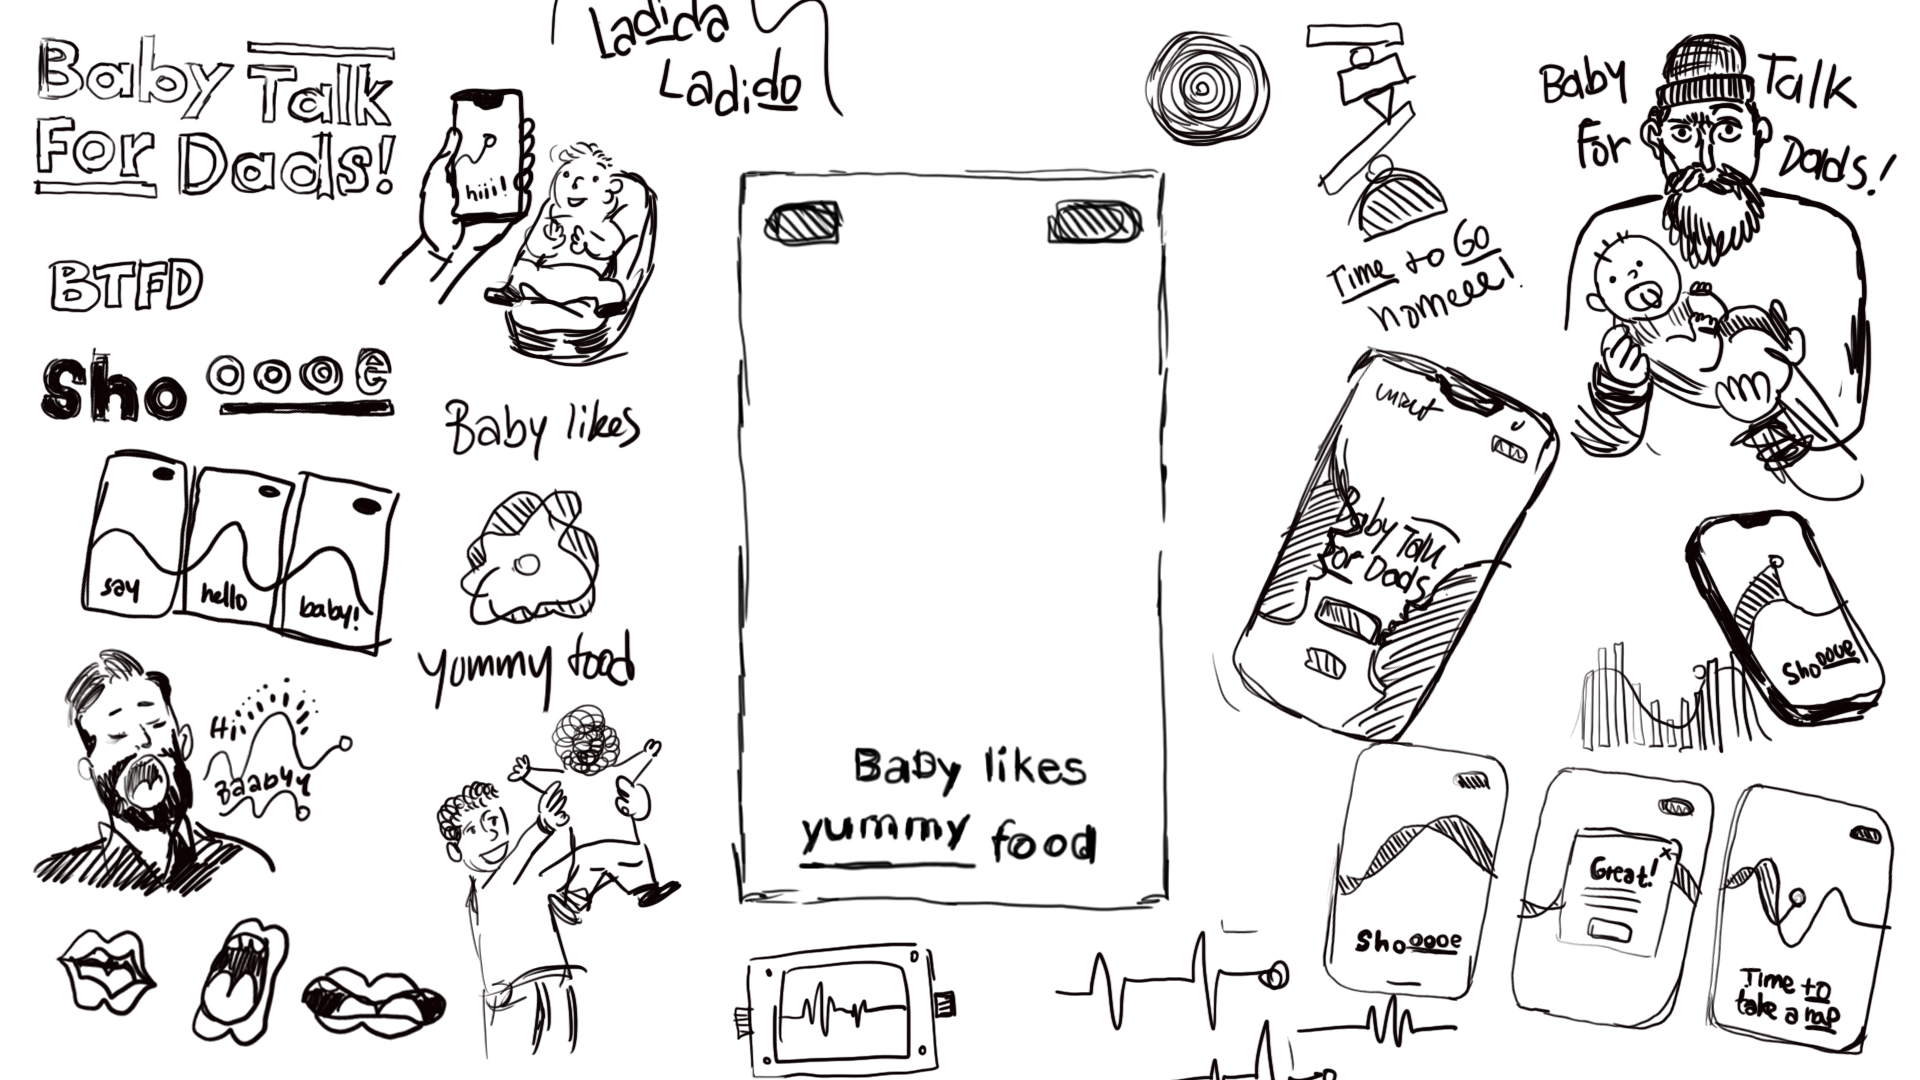 Baby Talk
For Dads!
BTFD
Shooooe
say
hello
baby!
Hi
Baabyy
hiii!
Ladida
Ladido
Baby likes
yummy food
Baby likes
yummy food
Time to Go
homeee!
Baby Talk
For Dads!
Baby Talk
For Dads
Shooooe
Shooooe
Great!
Time to
take a nap